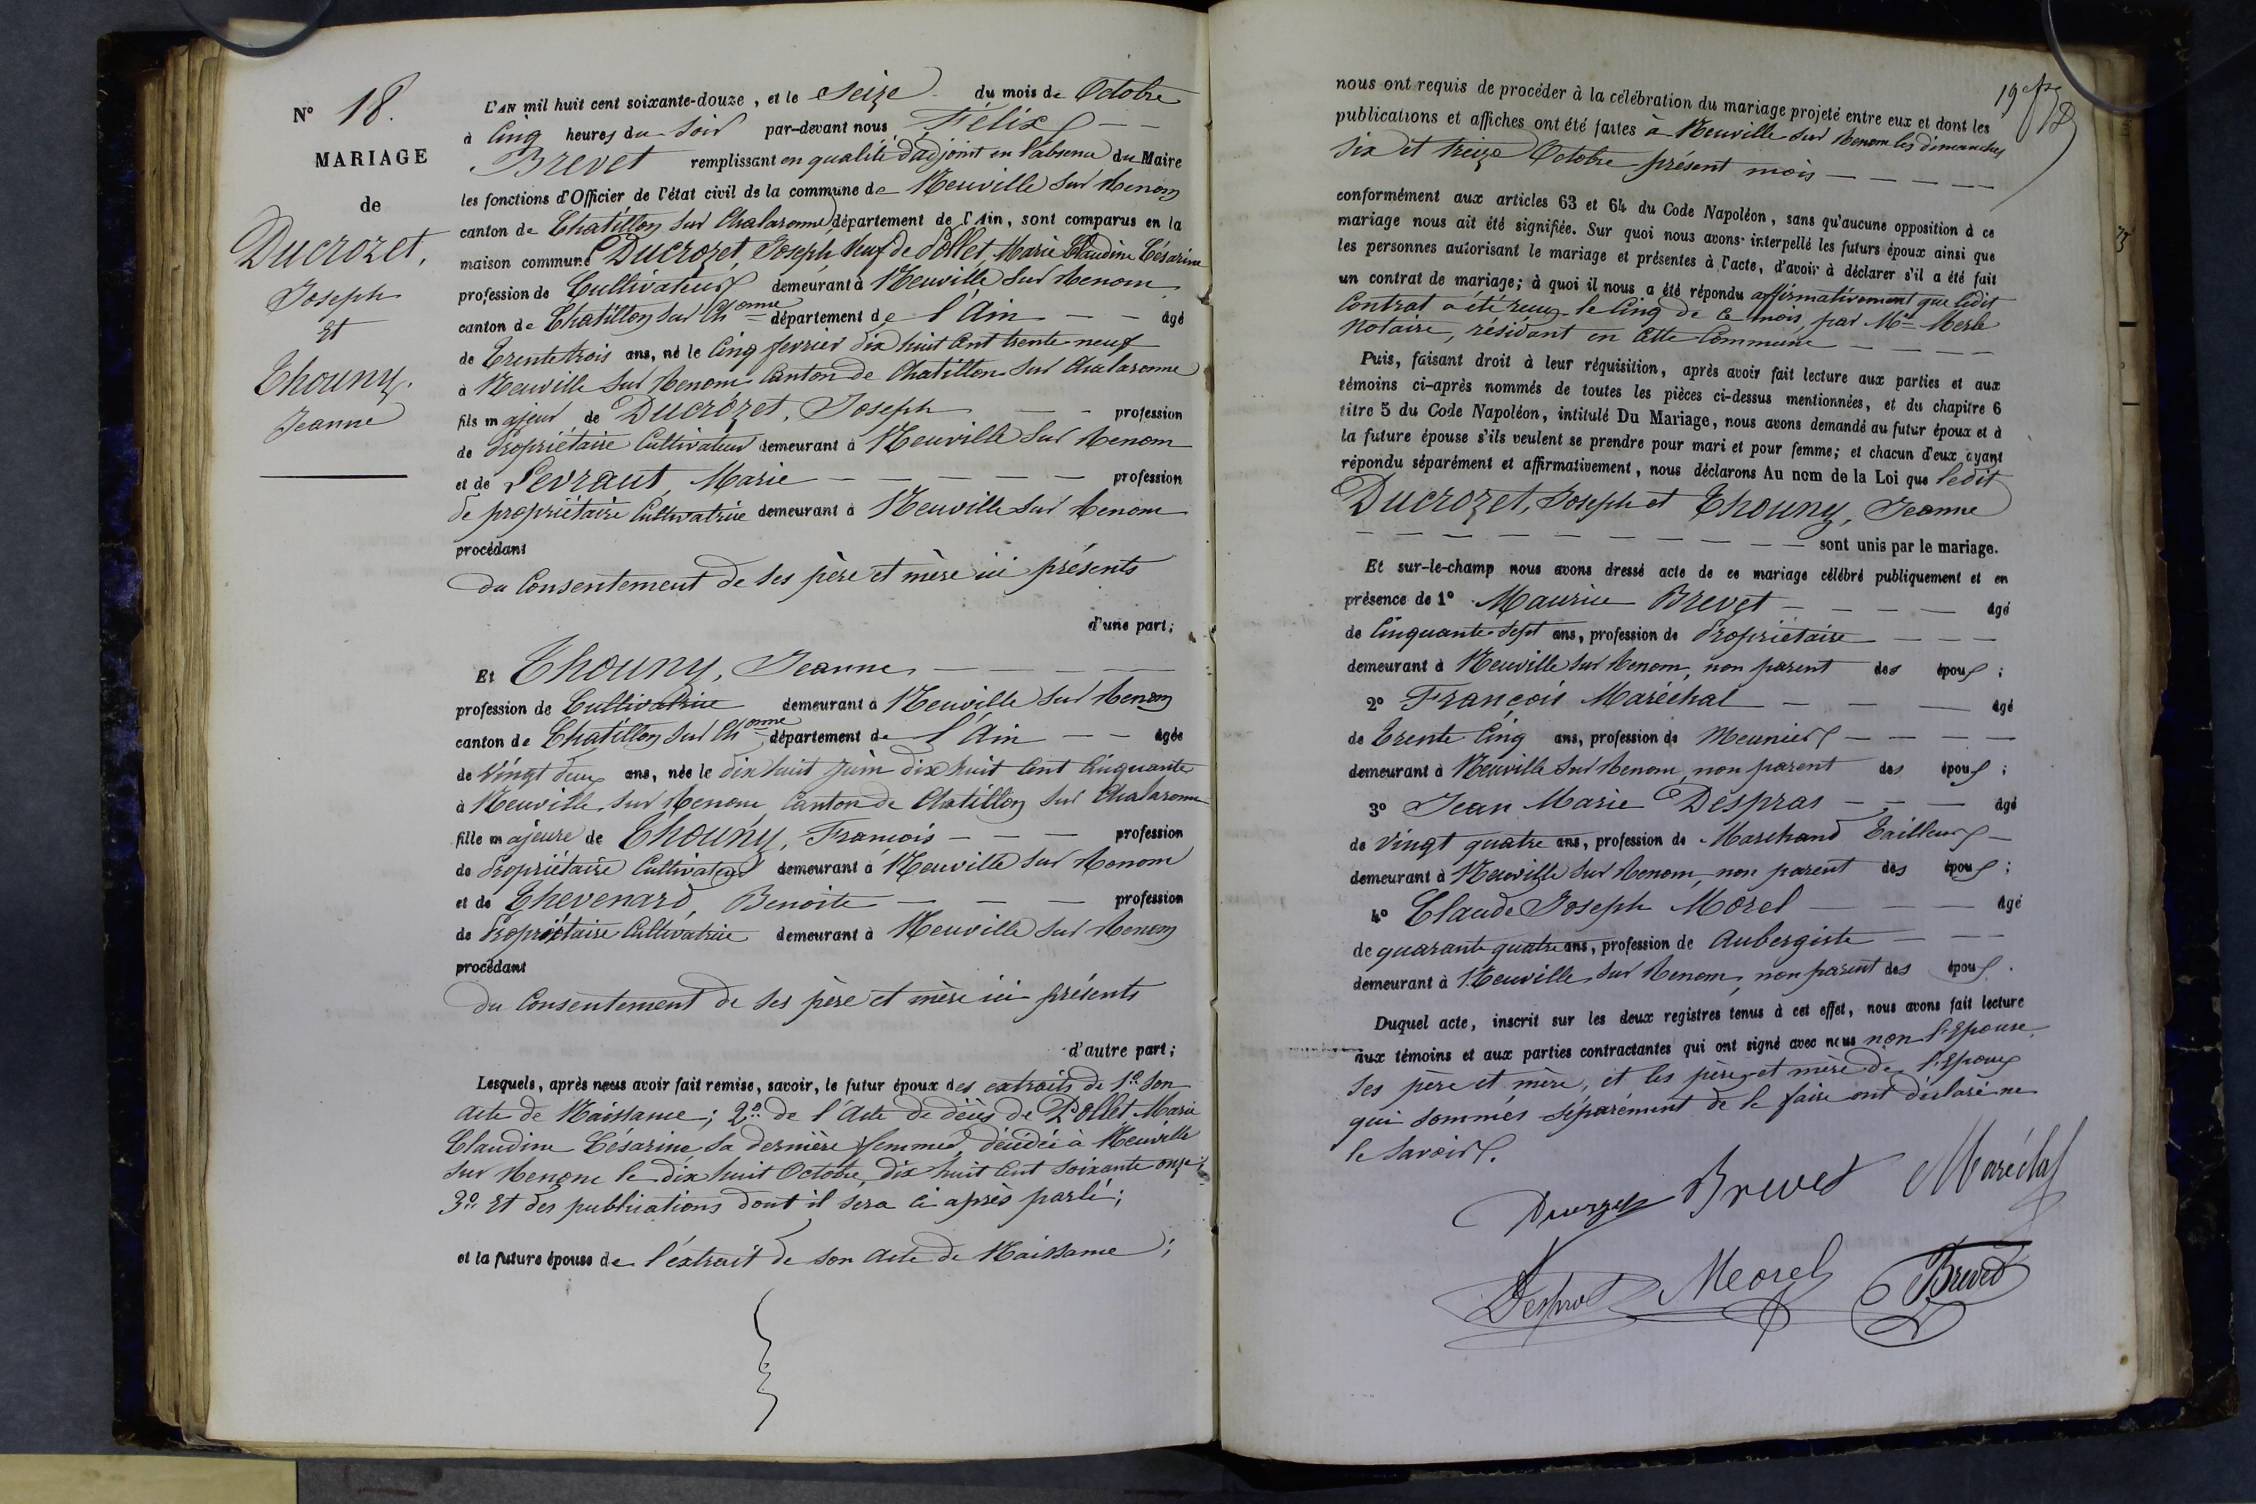 N° 18.
MARIAGE
de
Ducrozet,
Joseph
Et
Thouny.
Jeanne
L'AN mil huit cent soixante-douze, et le Seize du mois de Octobre
à Cinq heures du Soir par-devant nous Félix
Brevet remplissant en qualité d'adjoint en l'absence du Maire
les fonctions d'Officier de l'état civil de la commune de Neuville Sur Renom
canton de Chatillon Sur Chalaronne département de l'Ain, sont comparus en la
maison commune Ducrozet, Joseph, Veuf de Pollet, Marie Claudine Césarine
profession de Cultivateur demeurant à Neuville Sur Renom
canton de Chatillon Sur Chonne département de l'Ain — — âgé
de Trente trois ans, né le Cinq fevrier dix huit Cent trente neuf
à Neuville Sur Renom Canton de Chatillon Sur Chalaronne
fils majeur de Ducrozet, Joseph — — profession
de Propriétaire Cultivateur demeurant à Neuville Sur Renom
et de Levraut, Marie — — — — — profession
de propriétaire Cultivatrice demeurant à Neuville Sur Renom
procédant
du Consentement de ses père et mère ici présents
d'une part;
Et Thouny, Jeanne — — — — —
profession de Cultivatrice demeurant à Neuville Sur Renom
canton de Chatillon Sur Chonne département de l'Ain — — âgée
de Vingt deux ans, née le dix huit Juin dix huit Cent Cinquante
à Neuville Sur Renom, Canton de Chatillon Sur Chalaronne
fille majeure de Thouny, Francois — — — profession
de Propriétaire Cultivateur demeurant à Neuville Sur Renom
et de Thevenard, Benoite — — — profession
de Propriétaire Cultivatrice demeurant à Neuville Sur Renom
procédant
du Consentement de ses père et mère ici présents
d'autre part;
Lesquels, après nous avoir fait remise, savoir, le futur époux des extraits de 1°. Son
acte de Naissance; 2°. de l'Acte de décès de Pollet Marie
Claudine Césarine, Sa dernière femme, décédée à Neuville
sur Renom le dix huit Octobre dix huit Cent Soixante onze;
3°. Et des publications dont il sera ci après parlé;
et la future épouse de l'extrait de son Acte de Naissance;
nous ont requis de procéder à la célébration du mariage projeté entre eux et dont les
publications et affiches ont été faites à Neuville Sur Renom les dimanches
Six et treize Octobre présent mois — — — — —
conformément aux articles 63 et 64 du Code Napoléon, sans qu'aucune opposition à ce
mariage nous ait été signifiée. Sur quoi nous avons interpellé les futurs époux ainsi que
les personnes autorisant le mariage et présentes à l'acte, d'avoir à déclarer s'il a été fait
un contrat de mariage; à quoi il nous a été répondu affirmativement que ledit
Contrat a été reçu le Cinq de ce mois, par Me Merle
Notaire, résidant en cette Commune — — — —
Puis, faisant droit à leur réquisition, après avoir fait lecture aux parties et aux
témoins ci-après nommés de toutes les pièces ci-dessus mentionnées, et du chapitre 6
titre 5 du Code Napoléon, intitulé Du Mariage, nous avons demandé au futur époux et à
la future épouse s'ils veulent se prendre pour mari et pour femme; et chacun d'eux ayant
répondu séparément et affirmativement, nous déclarons Au nom de la Loi que ledit
Ducrozet, Joseph et Thouny, Jeanne
— — — — — — — — — — sont unis par le mariage.
Et sur-le-champ nous avons dressé acte de ce mariage célébré publiquement et en
présence de 1° Maurice Brevet — — — — âgé
de Cinquante Sept ans, profession de Propriétaire — — —
demeurant à Neuville Sur Renom, non parent des époux;
2° François Maréchal — — — âgé
de Trente Cinq ans, profession de Meunier — — — —
demeurant à Neuville Sur Renom, non parent des époux;
3° Jean Marie Despras — — — âgé
de Vingt quatre ans, profession de Marchand Tailleur —
demeurant à Neuville Sur Renom, non parent des époux;
4° Claude Joseph Morel — — — âgé
de quarante quatre ans, profession de Aubergiste — — —
demeurant à Neuville Sur Renom, non parent des époux.
Duquel acte, inscrit sur les deux registres tenus à cet effet, nous avons fait lecture
aux témoins et aux parties contractantes qui ont signé avec nous non l'Epouse
Ses père et mère, et les père et mère de l'Epoux
qui sommés séparément de le faire ont déclaré ne
le Savoir.
Brevet Maréchal
Morel Brevet